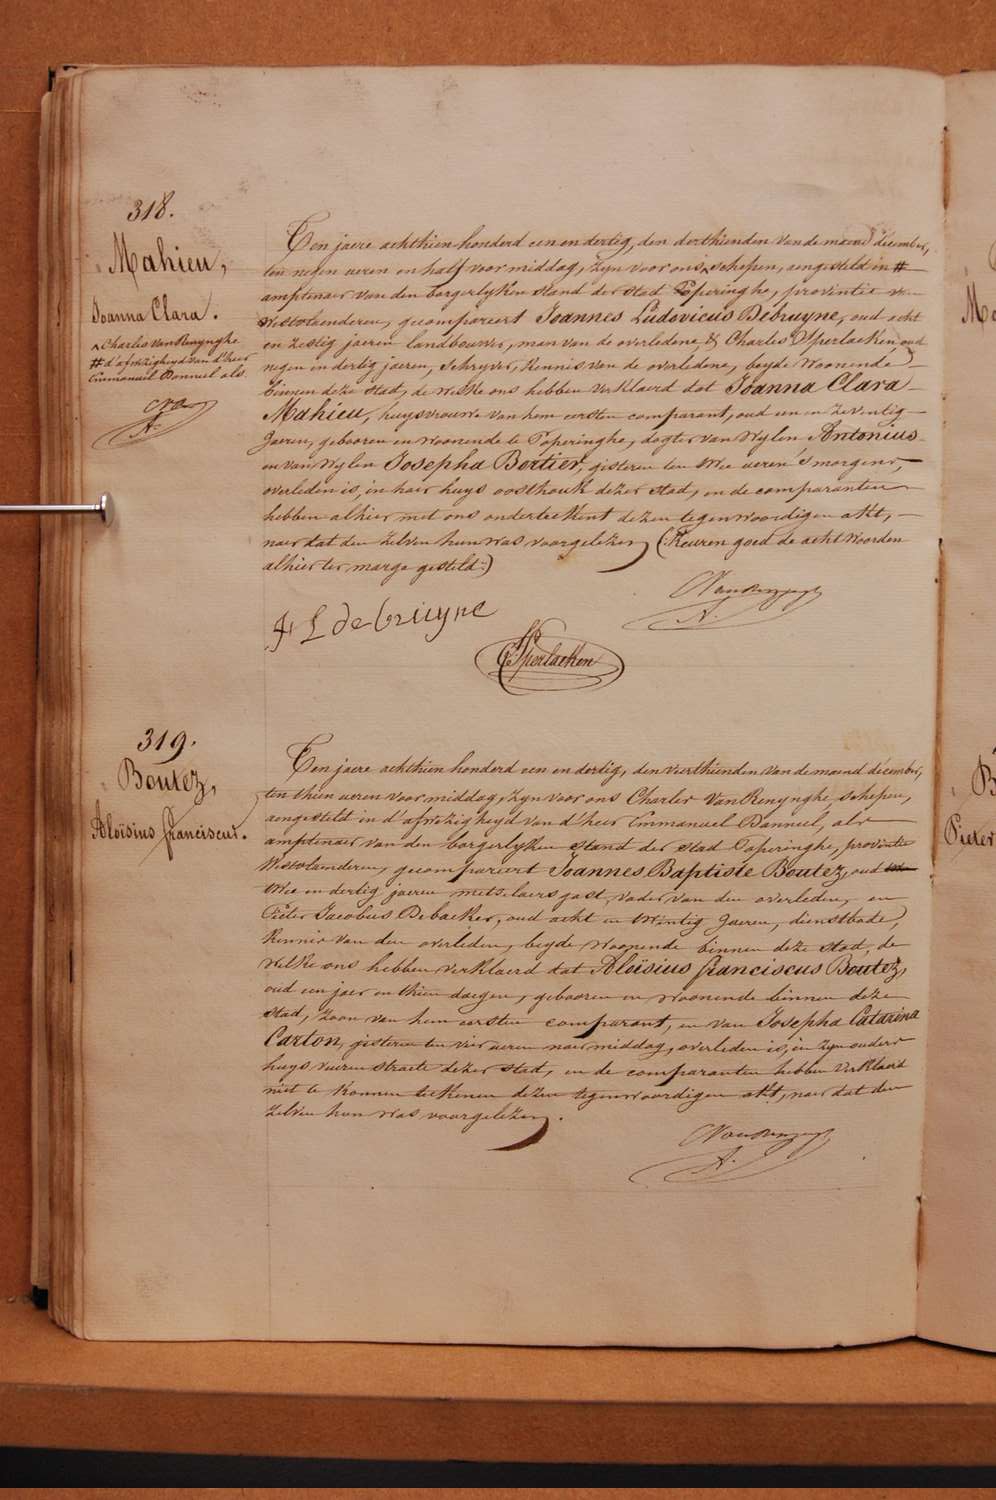 318.
Mahieu,
Joanna Clara.
^ Charles Van Renynghe
# d'afwezigheyd van d'heer
Emmanuel Banneel als.
Ten jaere achthien honderd een en dertig, den derthienden van de maend december,
ten negen ueren en half voor middag, zyn voor ons ^ schepen, aengesteld in #
amptenaer van den borgerlyken stand der stad Poperinghe, provintie van
Westvlaenderen, gecompareert Joannes Ludovicus Debruyne, oud acht
en zestig jaeren landbouwer, man van de overledene, & Charles Sperlaeken, oud
negen en dertig jaeren, Schryver, kennis van de overledene, beyde Woonende
binnen deze stad, de welke ons hebben verklaerd dat Joanna Clara
Mahieu, huysvrouwe van hem eersten comparant, oud een en zeventig
Jaeren, gebooren en woonende te Poperinghe, dogter van Wylen Antonius
en van Wylen Josepha Bertier, gisteren ten twee ueren 's morgens,
overleden is, in haer huys oosthouk dezer stad, en de comparanten
hebben alhier met ons onderteekent dezen tegenwoordigen akt,
naer dat den zelven hun was voorgelezen (Keuren goed de acht woorden
alhier ter marge gesteld.)
J L debruyne
CVanRenynghe
Sperlaeken
319.
Boutez,
Aloïsius franciscus.
Ten jaere achthien honderd een en dertig, den vierthienden van de maend december,
ten thien ueren voor middag, zyn voor ons Charles VanRenynghe, schepen,
aengesteld in d'afwezigheyd van d'heer Emmanuel Banneel, als
amptenaer van den borgerlyken stand der stad Poperinghe, provintie
Westvlaenderen, gecompareert Joannes Baptiste Boutez, oud
twee en dertig jaeren metselaersgast, vader van den overleden, en
Pieter Jacobus Debacker, oud acht en twintig Jaeren, dienstbode,
kennis van den overleden, beyde woonende binnen deze stad, de
welke ons hebben verklaerd dat Aloïsius franciscus Boutez,
oud een jaer en thien daegen, gebooren en woonende binnen deze
stad, zoon van hem eersten comparant, en van Josepha Catarina
Carton, gisteren ten vier ueren naer middag, overleden is, in zyn ouders
huys veuren straete dezer stad, en de comparanten hebben verklaerd
niet te konnen teekenen dezen tegenwoordigen akt, naer dat den
zelven hun was voorgelezen.
CVanRenynghe